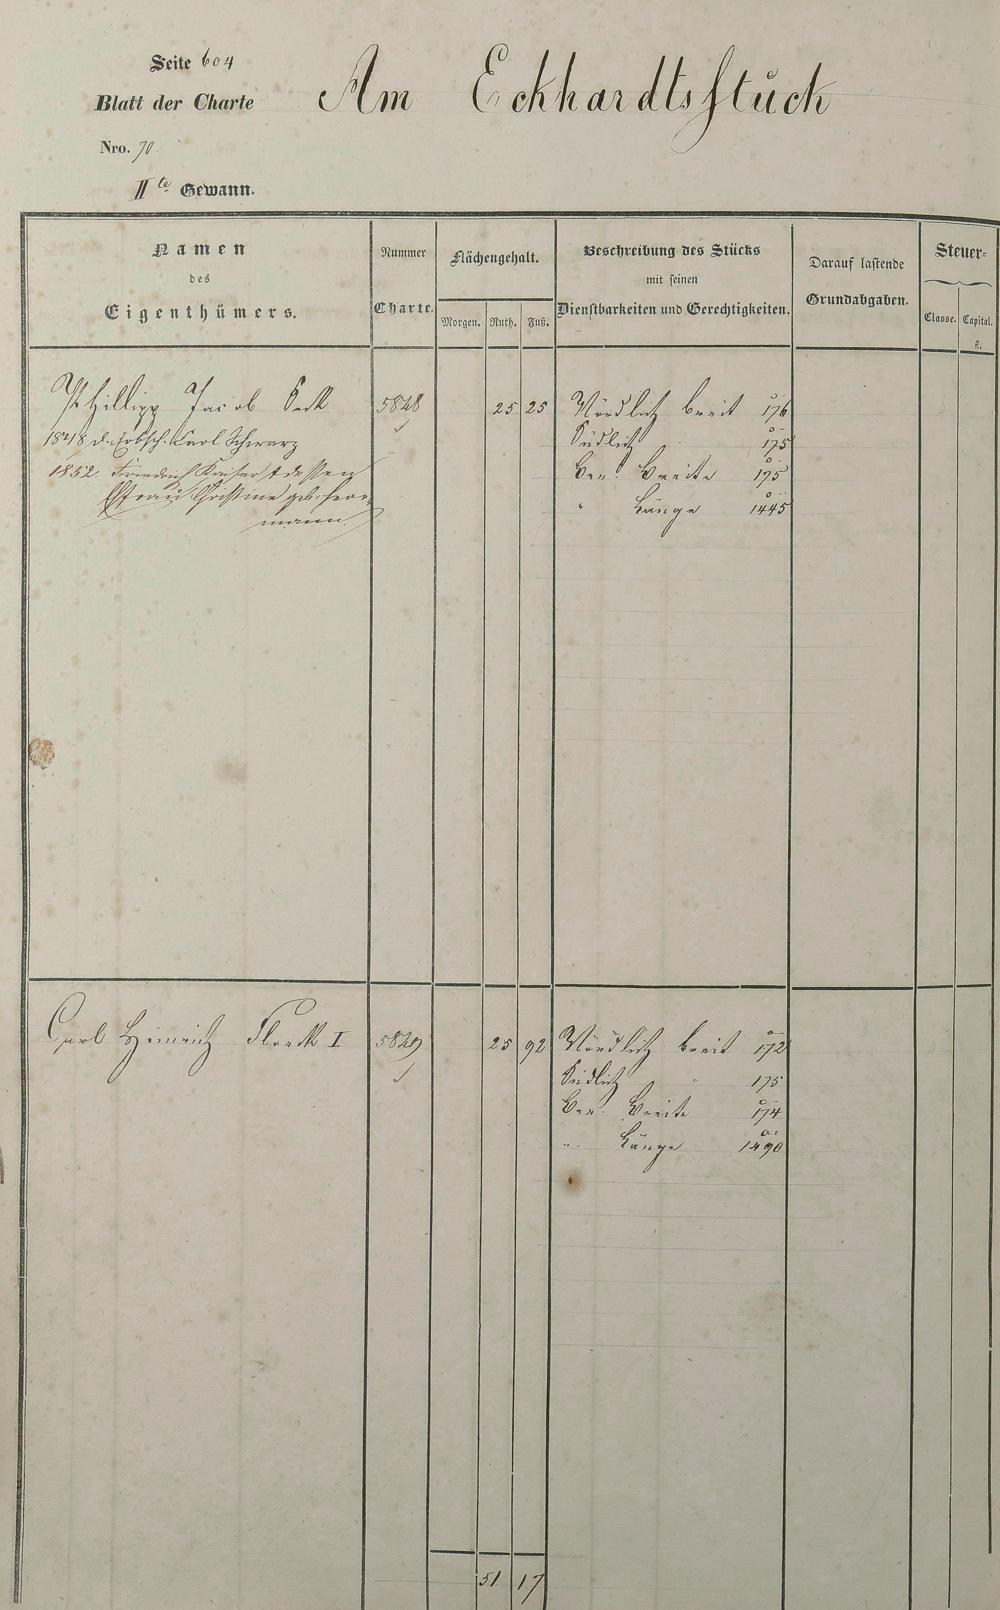 Seite 604
Am Eckhardtsstück
Blatt der Charte
Nro. 70.
IIte Gewann.
Namen
des
Eigenthümers.
Nummer
Charte.
Flächengehalt.
Morgen. Ruth. Fuß.
Beschreibung des Stücks
mit seinen
Dienstbarkeiten und Gerechtigkeiten.
Darauf lastende
Grundabgaben.
Steuer-
Classe. Capital.
fl.
Phillipp Jacob 5848 25 25 Nördlich breit 176
1848 d. Erbsch. Carl Schwarz Südlich 175
1852. Friedrich Kaiser & dessen Ber. Breite 175
Ehefrau Christine geb. Herr- " Länge 1445
mann
Carl Heinrich Floeck I 5849 25 92 Nördlich breit 172
Südlich " 175
Ber. Breite 174
" Länge 1490
51 17